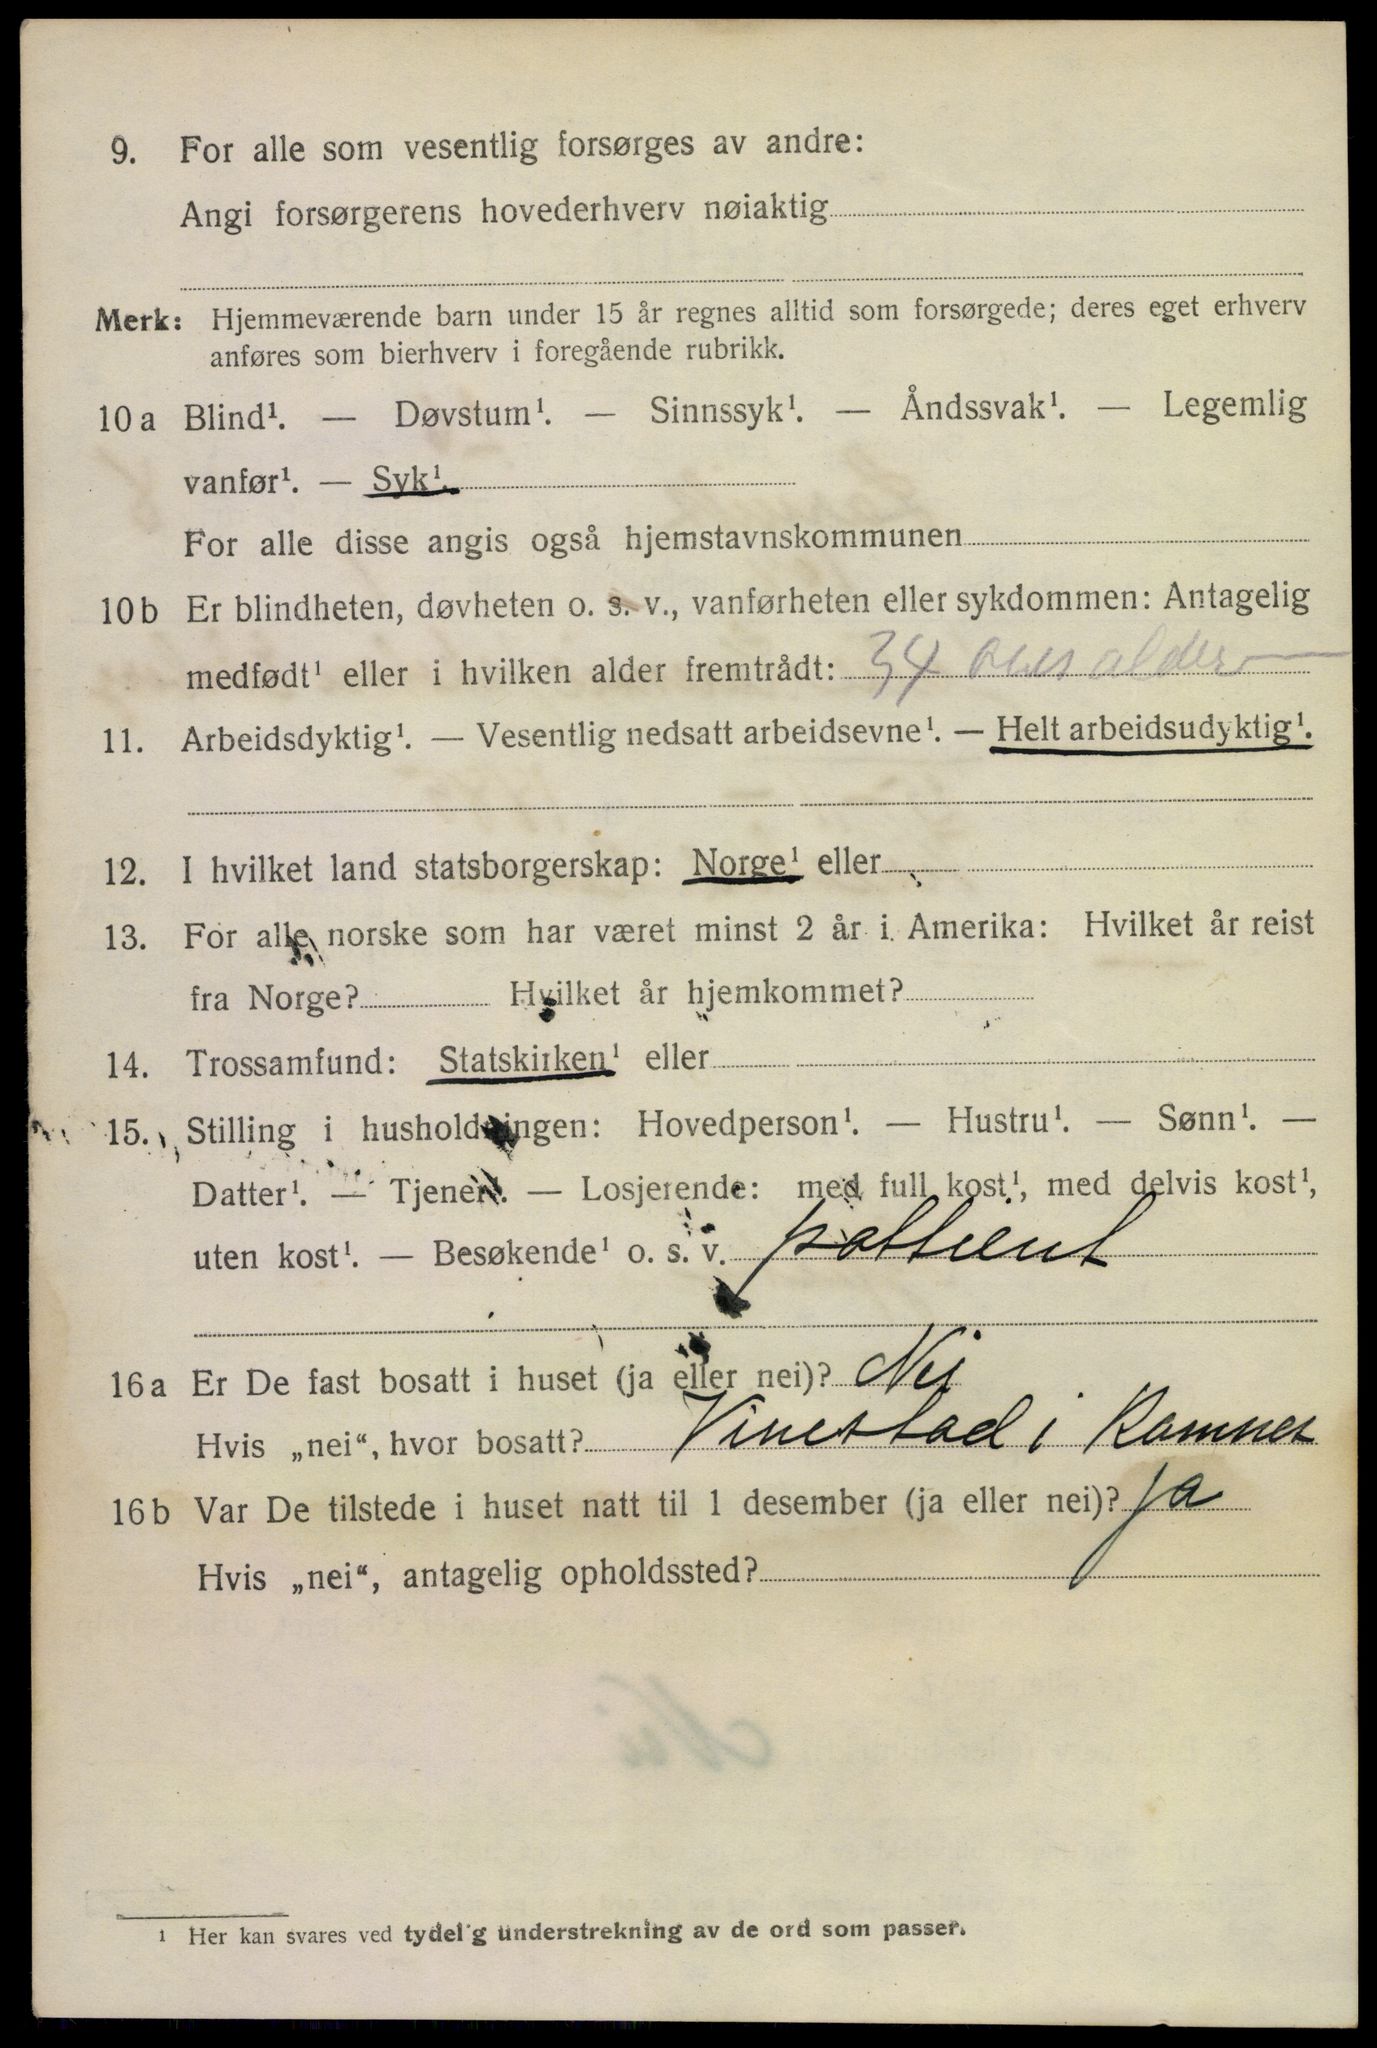 9. For alle som vesentlig forsørges av andre:
Angi forsørgerens hovederhverv nøiaktig
Merk: Hjemmeværende barn under 15 år regnes alltid som forsørgede; deres eget erhverv
anføres som bierhverv i foregående rubrikk.
10 a Blind¹. — Døvstum¹. — Sinnssyk¹. — Åndssvak¹. — Legemlig
vanfør¹. — Syk¹.
For alle disse angis også hjemstavnskommunen
10 b Er blindheten, døvheten o. s. v., vanførheten eller sykdommen: Antagelig
medfødt¹ eller i hvilken alder fremtrådt: 34 alder
11. Arbeidsdyktig¹. — Vesentlig nedsatt arbeidsevne¹. — Helt arbeidsudyktig¹.
12. I hvilket land statsborgerskap: Norge¹ eller
13. For alle norske som har været minst 2 år i Amerika: Hvilket år reist
fra Norge? Hvilket år hjemkommet?
14. Trossamfund: Statskirken¹ eller
15. Stilling i husholdningen: Hovedperson¹. — Hustru¹. — Sønn¹. —
Datter¹. — Tjener¹. — Losjerende: med full kost¹, med delvis kost¹,
uten kost¹. — Besøkende¹ o. s. v. pattient
16 a Er De fast bosatt i huset (ja eller nei)? Nei
Hvis „nei“, hvor bosatt? Vinestad i Ramnes
16 b Var De tilstede i huset natt til 1 desember (ja eller nei)? ja
Hvis „nei“, antagelig opholdssted?
¹ Her kan svares ved tydelig understrekning av de ord som passer.